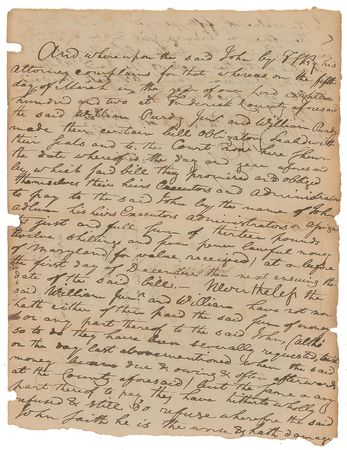 And whereupon the said John by his
attorney complains for that whereas on the fifth
day of March in the year of our Lord eighteen
hundred and two at Frederick County aforesaid
the said William Purdy Junr and William Purdy
made their certain bill obligatory sealed with
their seals and to the Court now here shewn
the date whereof is the day and year aforesaid
by which said bill they promised and obliged
themselves their heirs Executors and administrators
to pay to the said John by the name of John
his heirs Executors administrators or assigns
the just and full sum of thirteen pounds
twelve shillings and four pence lawful money
of Maryland for value received, at or before
the first day of December then next ensuing the
date of the said bill. Nevertheless the
said William Junr and William have not nor
hath either of them paid the said sum of money
or any part thereof to the said John, (altho
so to do they have been severally requested,
on the day last abovementioned when the said
money due & owing & often afterwards
at the County aforesaid) but the same or any
part thereof to pay they have hitherto wholly
refused & still do refuse wherefore the said
John saith he is the worse & hath damage